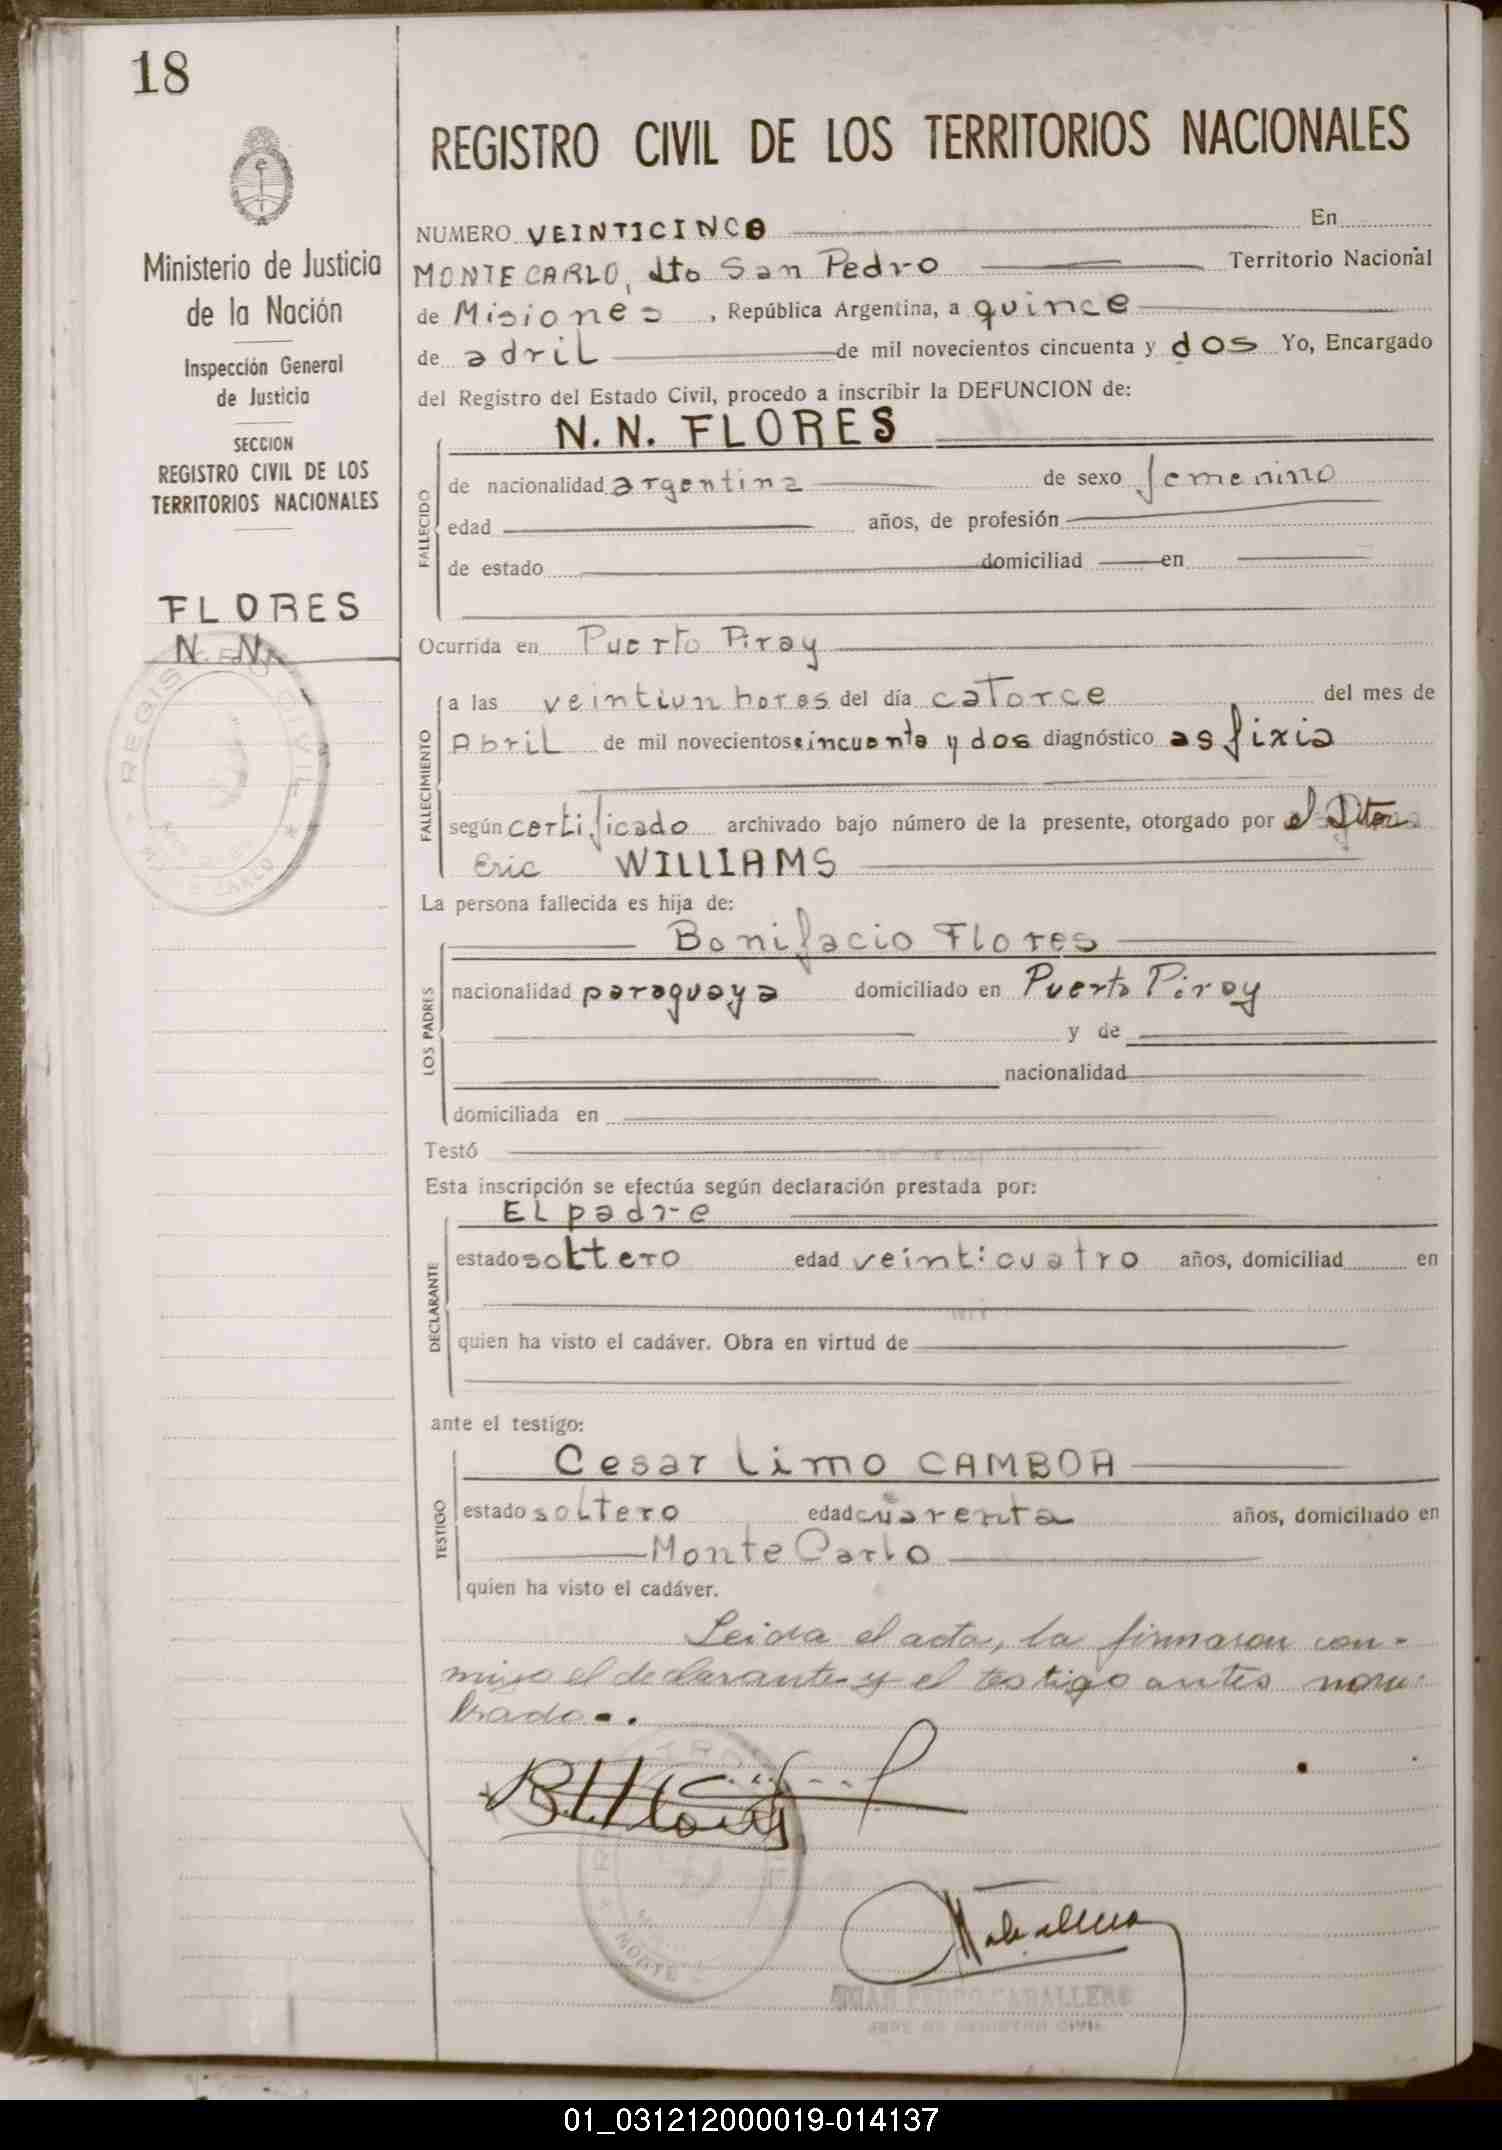 18
REGISTRO CIVIL DE LOS TERRITORIOS NACIONALES
Ministerio de Justicia
de la Nación
Inspección General
de Justicia
SECCION
REGISTRO CIVIL DE LOS
TERRITORIOS NACIONALES
FLORES
N. N.
REGISTRO CIVIL
NUMERO VEINTICINCO En
MONTECARLO, dto San Pedro Territorio Nacional
de Misiones , República Argentina, a quince
de adril de mil novecientos cincuenta y dos Yo, Encargado
del Registro del Estado Civil, procedo a inscribir la DEFUNCION de:
N. N. FLORES
FALLECIDO
de nacionalidad argentina de sexo femenino
edad años, de profesión
de estado domiciliad en
Ocurrida en Puerto Piray
FALLECIMIENTO
a las veintiun horas del día catorce del mes de
Abril de mil novecientos cincuenta y dos diagnóstico asfixia
según certificado archivado bajo número de la presente, otorgado por el
Eric WILLIAMS
La persona fallecida es hija de:
LOS PADRES
Bonifacio Flores
nacionalidad paraguaya domiciliado en Puerto Piray
y de
nacionalidad
domiciliada en
Testó
Esta inscripción se efectúa según declaración prestada por:
DECLARANTE
EL padre
estado soltero edad veinticuatro años, domiciliad en
quien ha visto el cadáver. Obra en virtud de
ante el testigo:
TESTIGO
Cesar Limo CAMBOA
estado soltero edad cuarenta años, domiciliado en
Monte Carlo
quien ha visto el cadáver.
Leida el acta, la firmaron con-
migo el declarante y el testigo antes nom-
brado-.
JUAN PEDRO CABALLERO
JEFE DE REGISTRO CIVIL
01_031212000019-014137